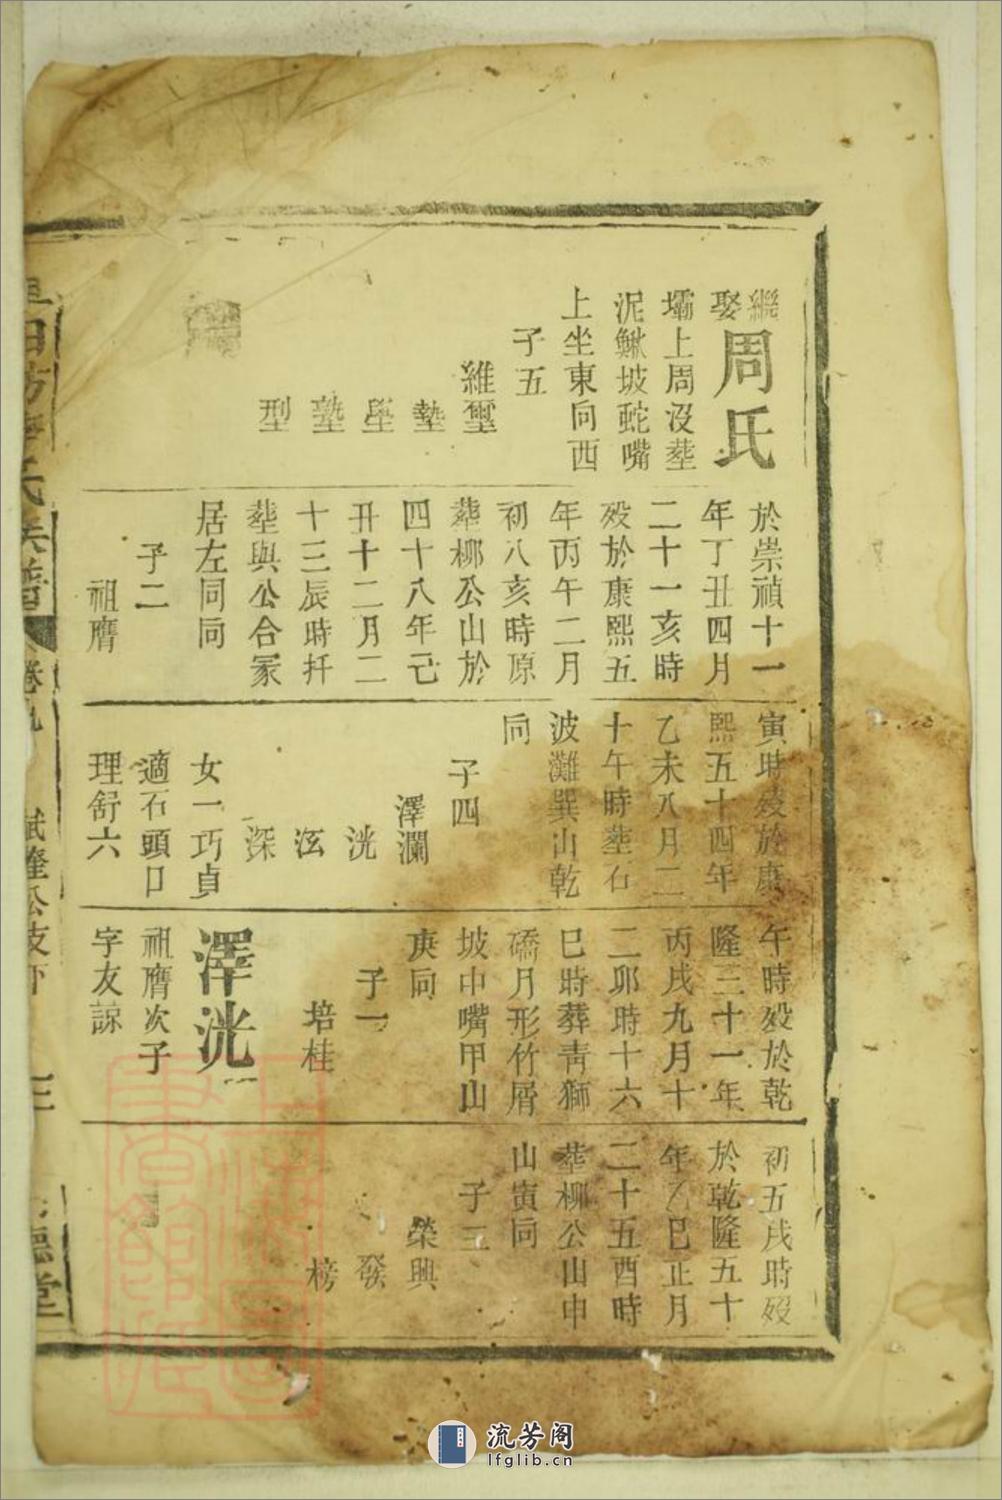 繼娶周氏
壩上周沒塟
泥鰍坡蛇嘴
上坐東向西
子五
維璽
塾
壆
塾
型
於崇禎十一
年丁丑四月
二十一亥時
歿於康熙五
年丙午二月
初八亥時原
塟柳公山於
四十八年己
丑十二月二
十三辰時扦
塟與公合冢
居左同向
子二
祖膺
寅時歿於康
熙五十四年
乙未八月二
十午時塟石
波灘巽山乾
向
子四
澤瀾
洸
泫
深
女一巧貞
適石頭口
理舒六
午時歿於乾
隆三十一年
丙戌九月十
二卯時十六
巳時葬青獅
礄月形竹屑
坡中嘴甲山
庚向
子一
培桂
澤洸
祖膺次子
字友諒
初五戌時歿
於乾隆五十
年乙巳正月
二十五酉時
塟柳公山申
山寅向
子三
榮興
發
榜
氏族譜 卷九 公支下 三 德堂
流芳阁
lfglib.cn